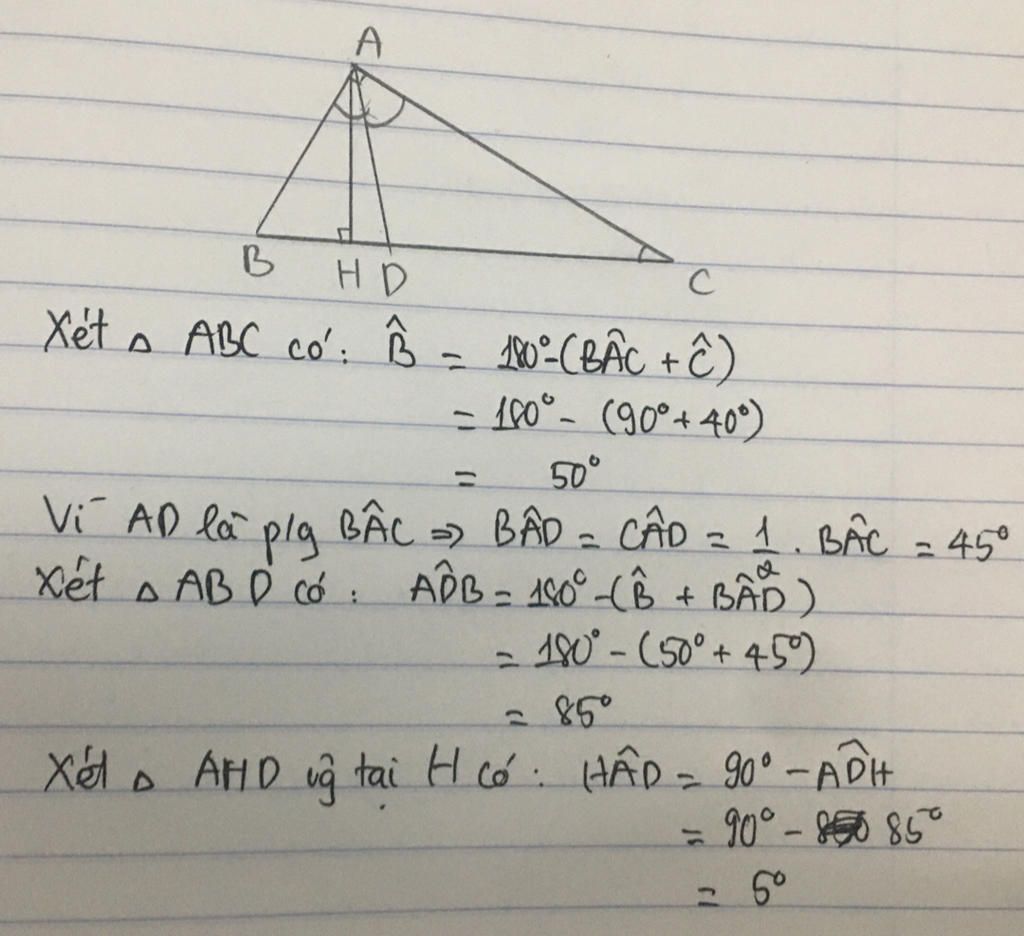 A
B H D C
Xét △ ABC có: B̂ = 180° - (BÂC + Ĉ)
= 180° - (90° + 40°)
= 50°
Vì AD là p/g BÂC => BÂD = CÂD = 1/2 . BÂC = 45°
Xét △ ABD có: AD̂B = 180° - (B̂ + BÂD)
= 180° - (50° + 45°)
= 85°
Xét △ AHD vg tại H có: HÂD = 90° - AD̂H
= 90° - 85°
= 5°